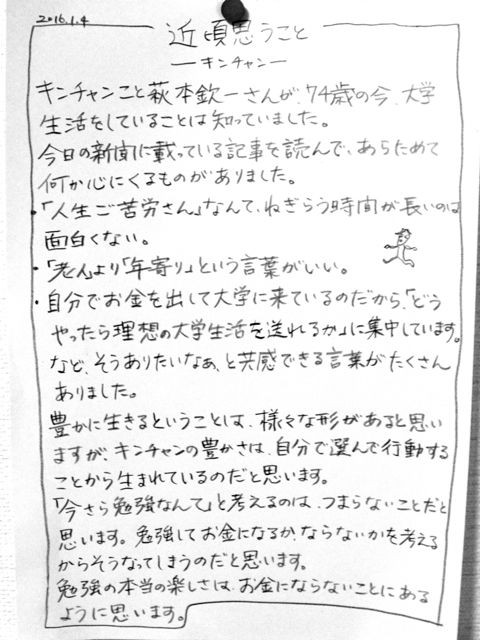 2016.1.4
近頃思うこと
—キンチャン—
キンチャンこと萩本欽一さんが、74歳の今、大学
生活をしていることは知っていました。
今日の新聞に載っている記事を読んで、あらためて
何か心にくるものがありました。
・「人生ご苦労さん」なんて、ねぎらう時間が長いのは
面白くない。
・「老人」より「年寄り」という言葉がいい。
・自分でお金を出して大学に来ているのだから、「どう
やったら理想の大学生活を送れるか」に集中しています。
など、そうありたいなぁ、と共感できる言葉がたくさん
ありました。
豊かに生きるということは、様々な形があると思い
ますが、キンチャンの豊かさは、自分で選んで行動する
ことから生まれているのだと思います。
「今さら勉強なんて」と考えるのは、つまらないことだと
思います。勉強してお金になるか、ならないかを考える
からそうなってしまうのだと思います。
勉強の本当の楽しさは、お金にならないことにある
ように思います。